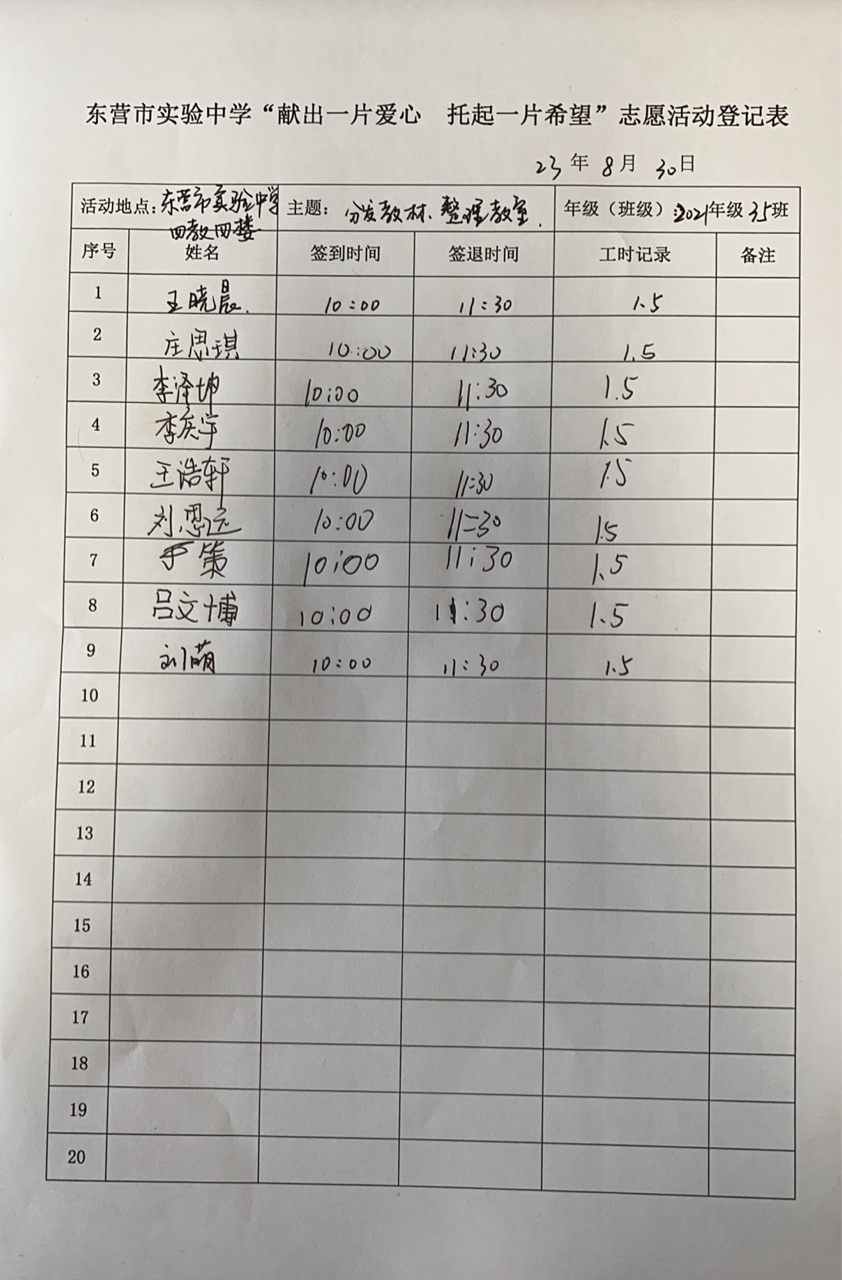 东营市实验中学“献出一片爱心 托起一片希望”志愿活动登记表
23年8月30日
活动地点:东营市实验中学四教四楼 主题:分发教材、整理教室. 年级(班级):2021年级35班
序号 姓名 签到时间 签退时间 工时记录 备注
1 王晓晨. 10:00 11:30 1.5
2 庄思琪 10:00 11:30 1.5
3 李泽坤 10:00 11:30 1.5
4 李奕宇 10:00 11:30 1.5
5 王浩轩 10:00 11:30 1.5
6 刘恩远 10:00 11:30 1.5
7 于策 10:00 11:30 1.5
8 吕文博 10:00 11:30 1.5
9 刘萌 10:00 11:30 1.5
10
11
12
13
14
15
16
17
18
19
20